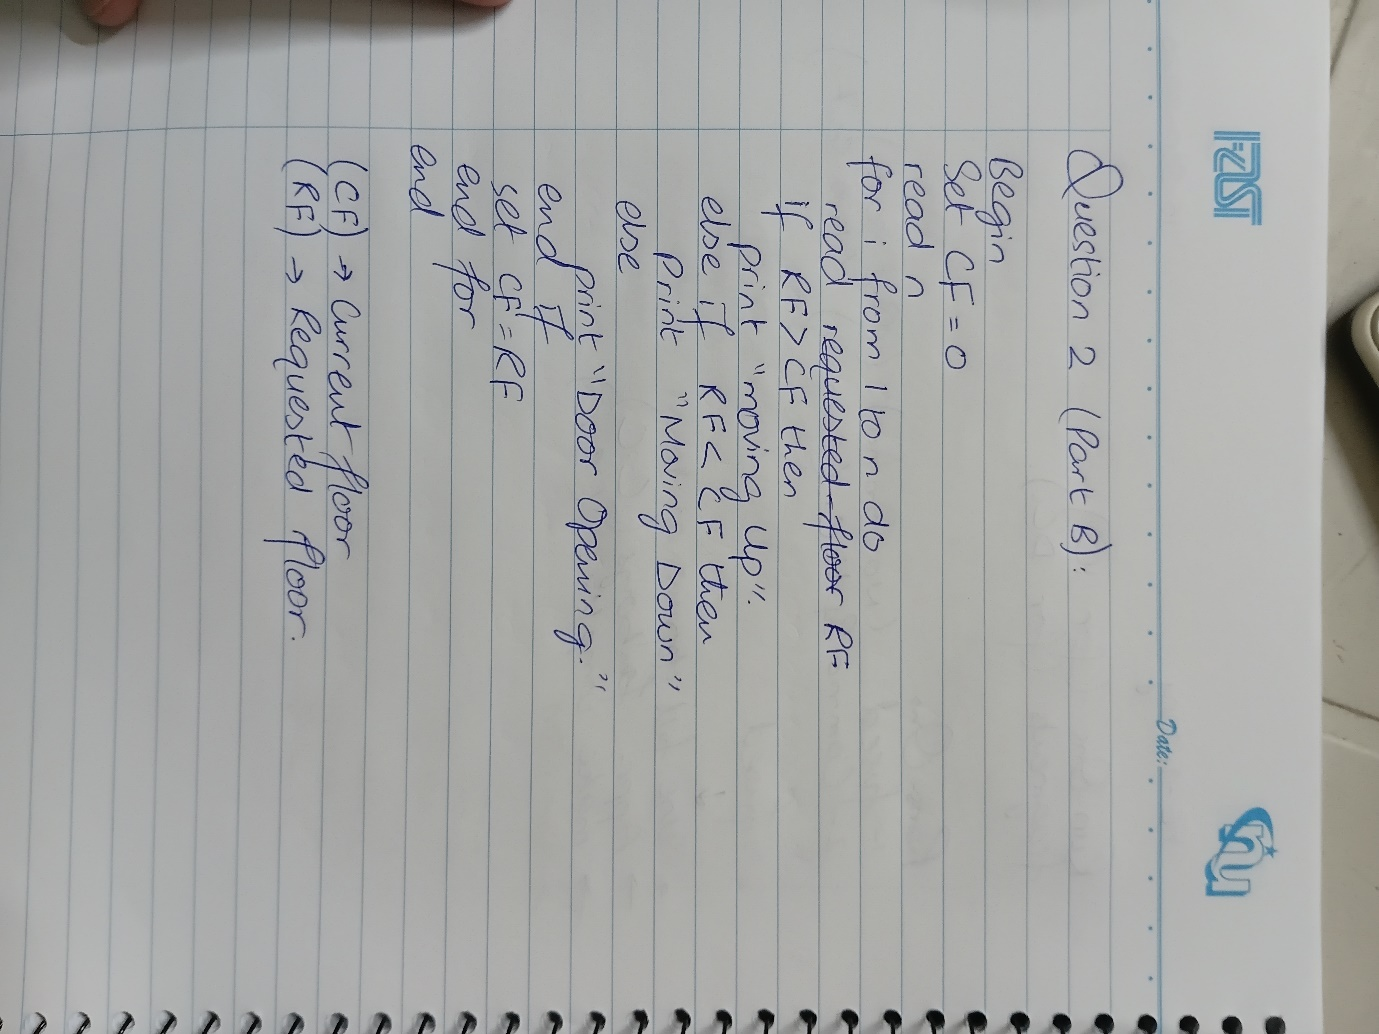 FAST
nu
Date:
Question 2 (Part B):
Begin
Set CF = 0
read n
for i from 1 to n do
read requested floor RF
if RF > CF then
print "moving Up".
else if RF < CF then
Print "Moving Down"
else
print "Door Opening."
end if
set CF = RF
end for
end
(CF) → Current floor
(RF) → Requested floor.